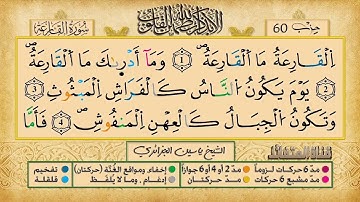 سُورَةُ القَارِعَة
أَلَا بِذِكْرِ اللَّهِ تَطْمَئِنُّ الْقُلُوبُ
حزب 60
اِ۬لْقَارِعَةُ مَا اَ۬لْقَارِعَةُۖ ١ وَمَآ أَدْر۪يٰكَ مَا اَ۬لْقَارِعَةُۖ
٢ يَوْمَ يَكُونُ اُ۬لنَّاسُ كَالْفَرَاشِ اِ۬لْمَبْثُوثِ ٣
وَتَكُونُ اُ۬لْجِبَالُ كَالْعِهْنِ اِ۬لْمَنفُوشِۖ ٤ فَأَمَّا
الشيخ ياسين الجزائري
مدّ 6 حركات لزوماً
مدّ 2 أو 4 أو 6 جوازاً
إخفاء، ومواقع الغُنَّة (حركتان)
تفخيم
مدّ مشبع 6 حركات
مدّ حركتان
إدغام، وما لا يُلفَظ
قلقلة